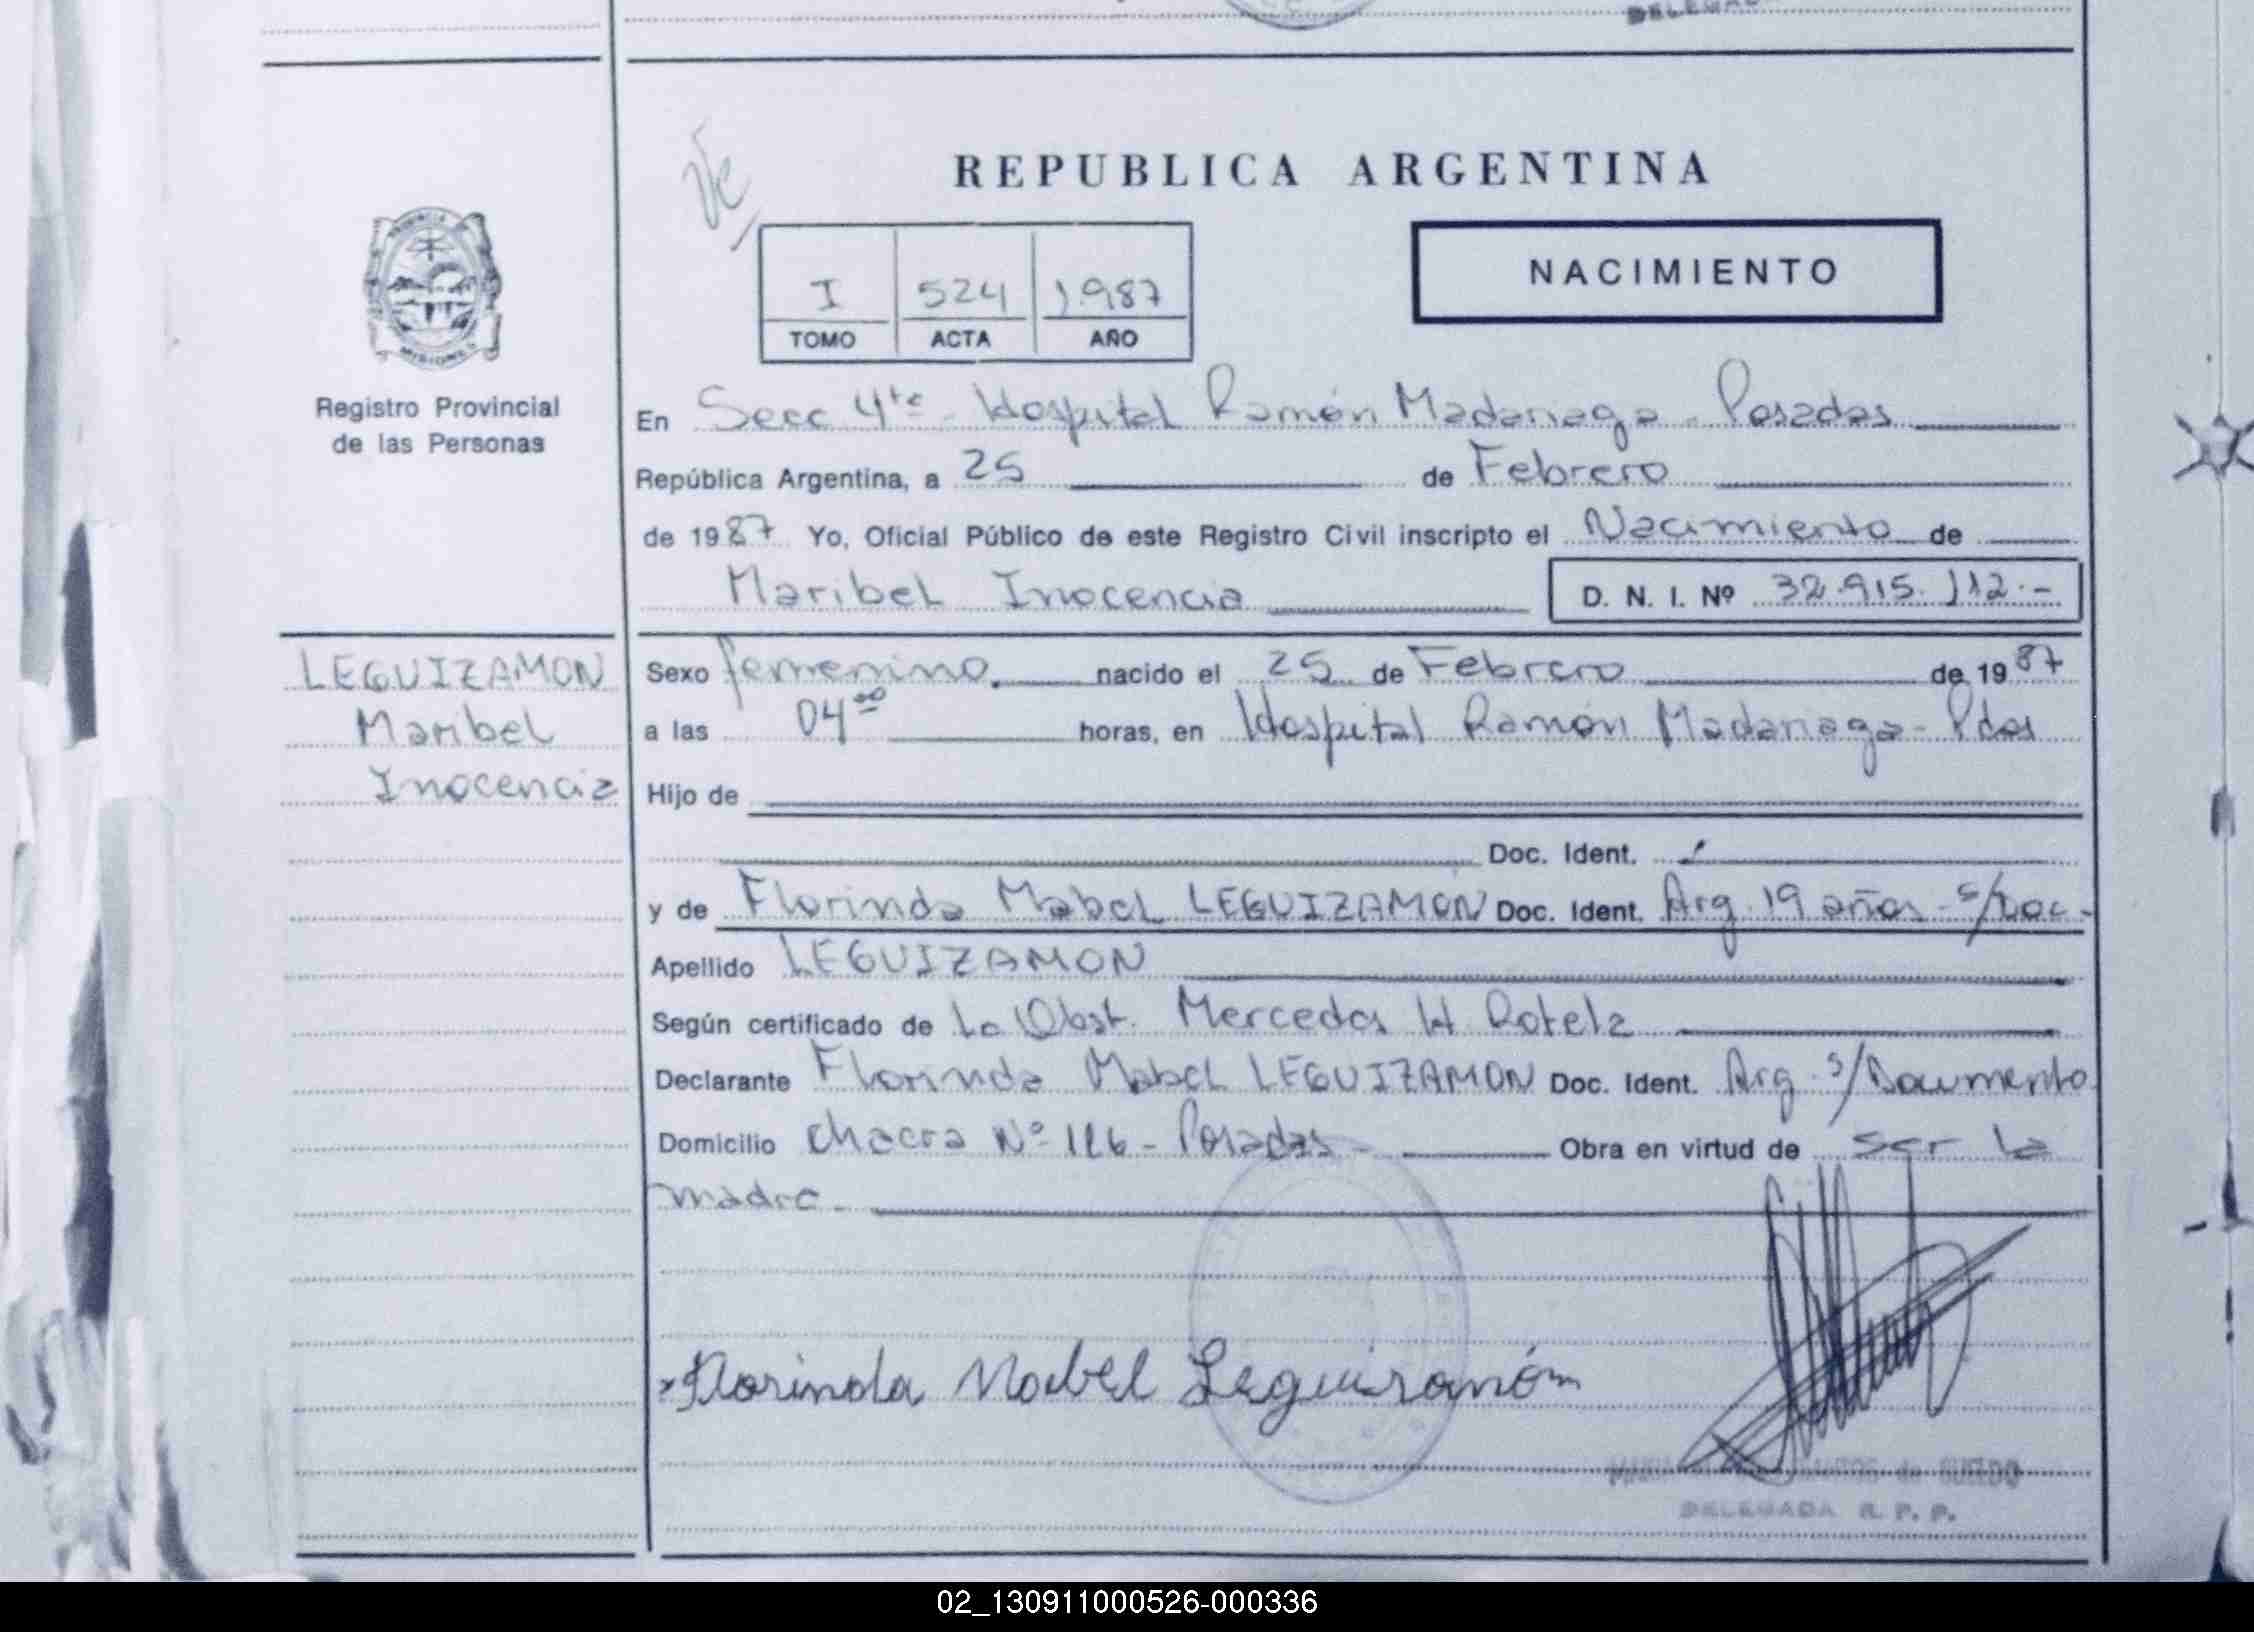 DELEGADA
REPUBLICA ARGENTINA
I 524 1.987
TOMO ACTA AÑO
NACIMIENTO
PROVINCIA
MISIONES
Registro Provincial
de las Personas
En Secc 4ta - Hospital Ramón Madariaga - Posadas
República Argentina, a 25 de Febrero
de 1987 Yo, Oficial Público de este Registro Civil inscripto el Nacimiento de
Maribel Inocencia D. N. I. Nº 32.915.112.-
LEGUIZAMON
Maribel
Inocencia
Sexo femenino. nacido el 25 de Febrero de 1987
a las 04⁰⁰ horas, en Hospital Ramón Madariaga - Pdas
Hijo de
Doc. Ident.
y de Florinda Mabel LEGUIZAMON Doc. Ident. Arg. 19 años - s/Doc -
Apellido LEGUIZAMON
Según certificado de La Obst. Mercedes H Rotela
Declarante Florinda Mabel LEGUIZAMON Doc. Ident. Arg. s/Documento
Domicilio Chacra Nº 126 - Posadas - Obra en virtud de ser la
madre -
Florinda Mabel Leguiramón
DELEGADA R. P. P.
02_130911000526-000336